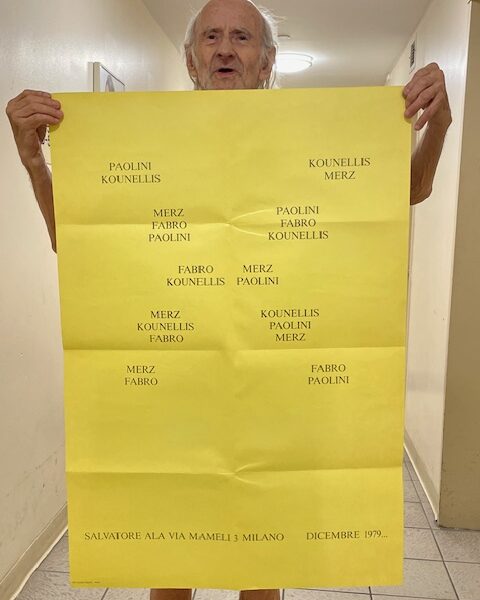 PAOLINI
KOUNELLIS
KOUNELLIS
MERZ
MERZ
FABRO
PAOLINI
PAOLINI
FABRO
KOUNELLIS
FABRO
KOUNELLIS
MERZ
PAOLINI
MERZ
KOUNELLIS
FABRO
KOUNELLIS
PAOLINI
MERZ
MERZ
FABRO
FABRO
PAOLINI
SALVATORE ALA VIA MAMELI 3 MILANO DICEMBRE 1979...